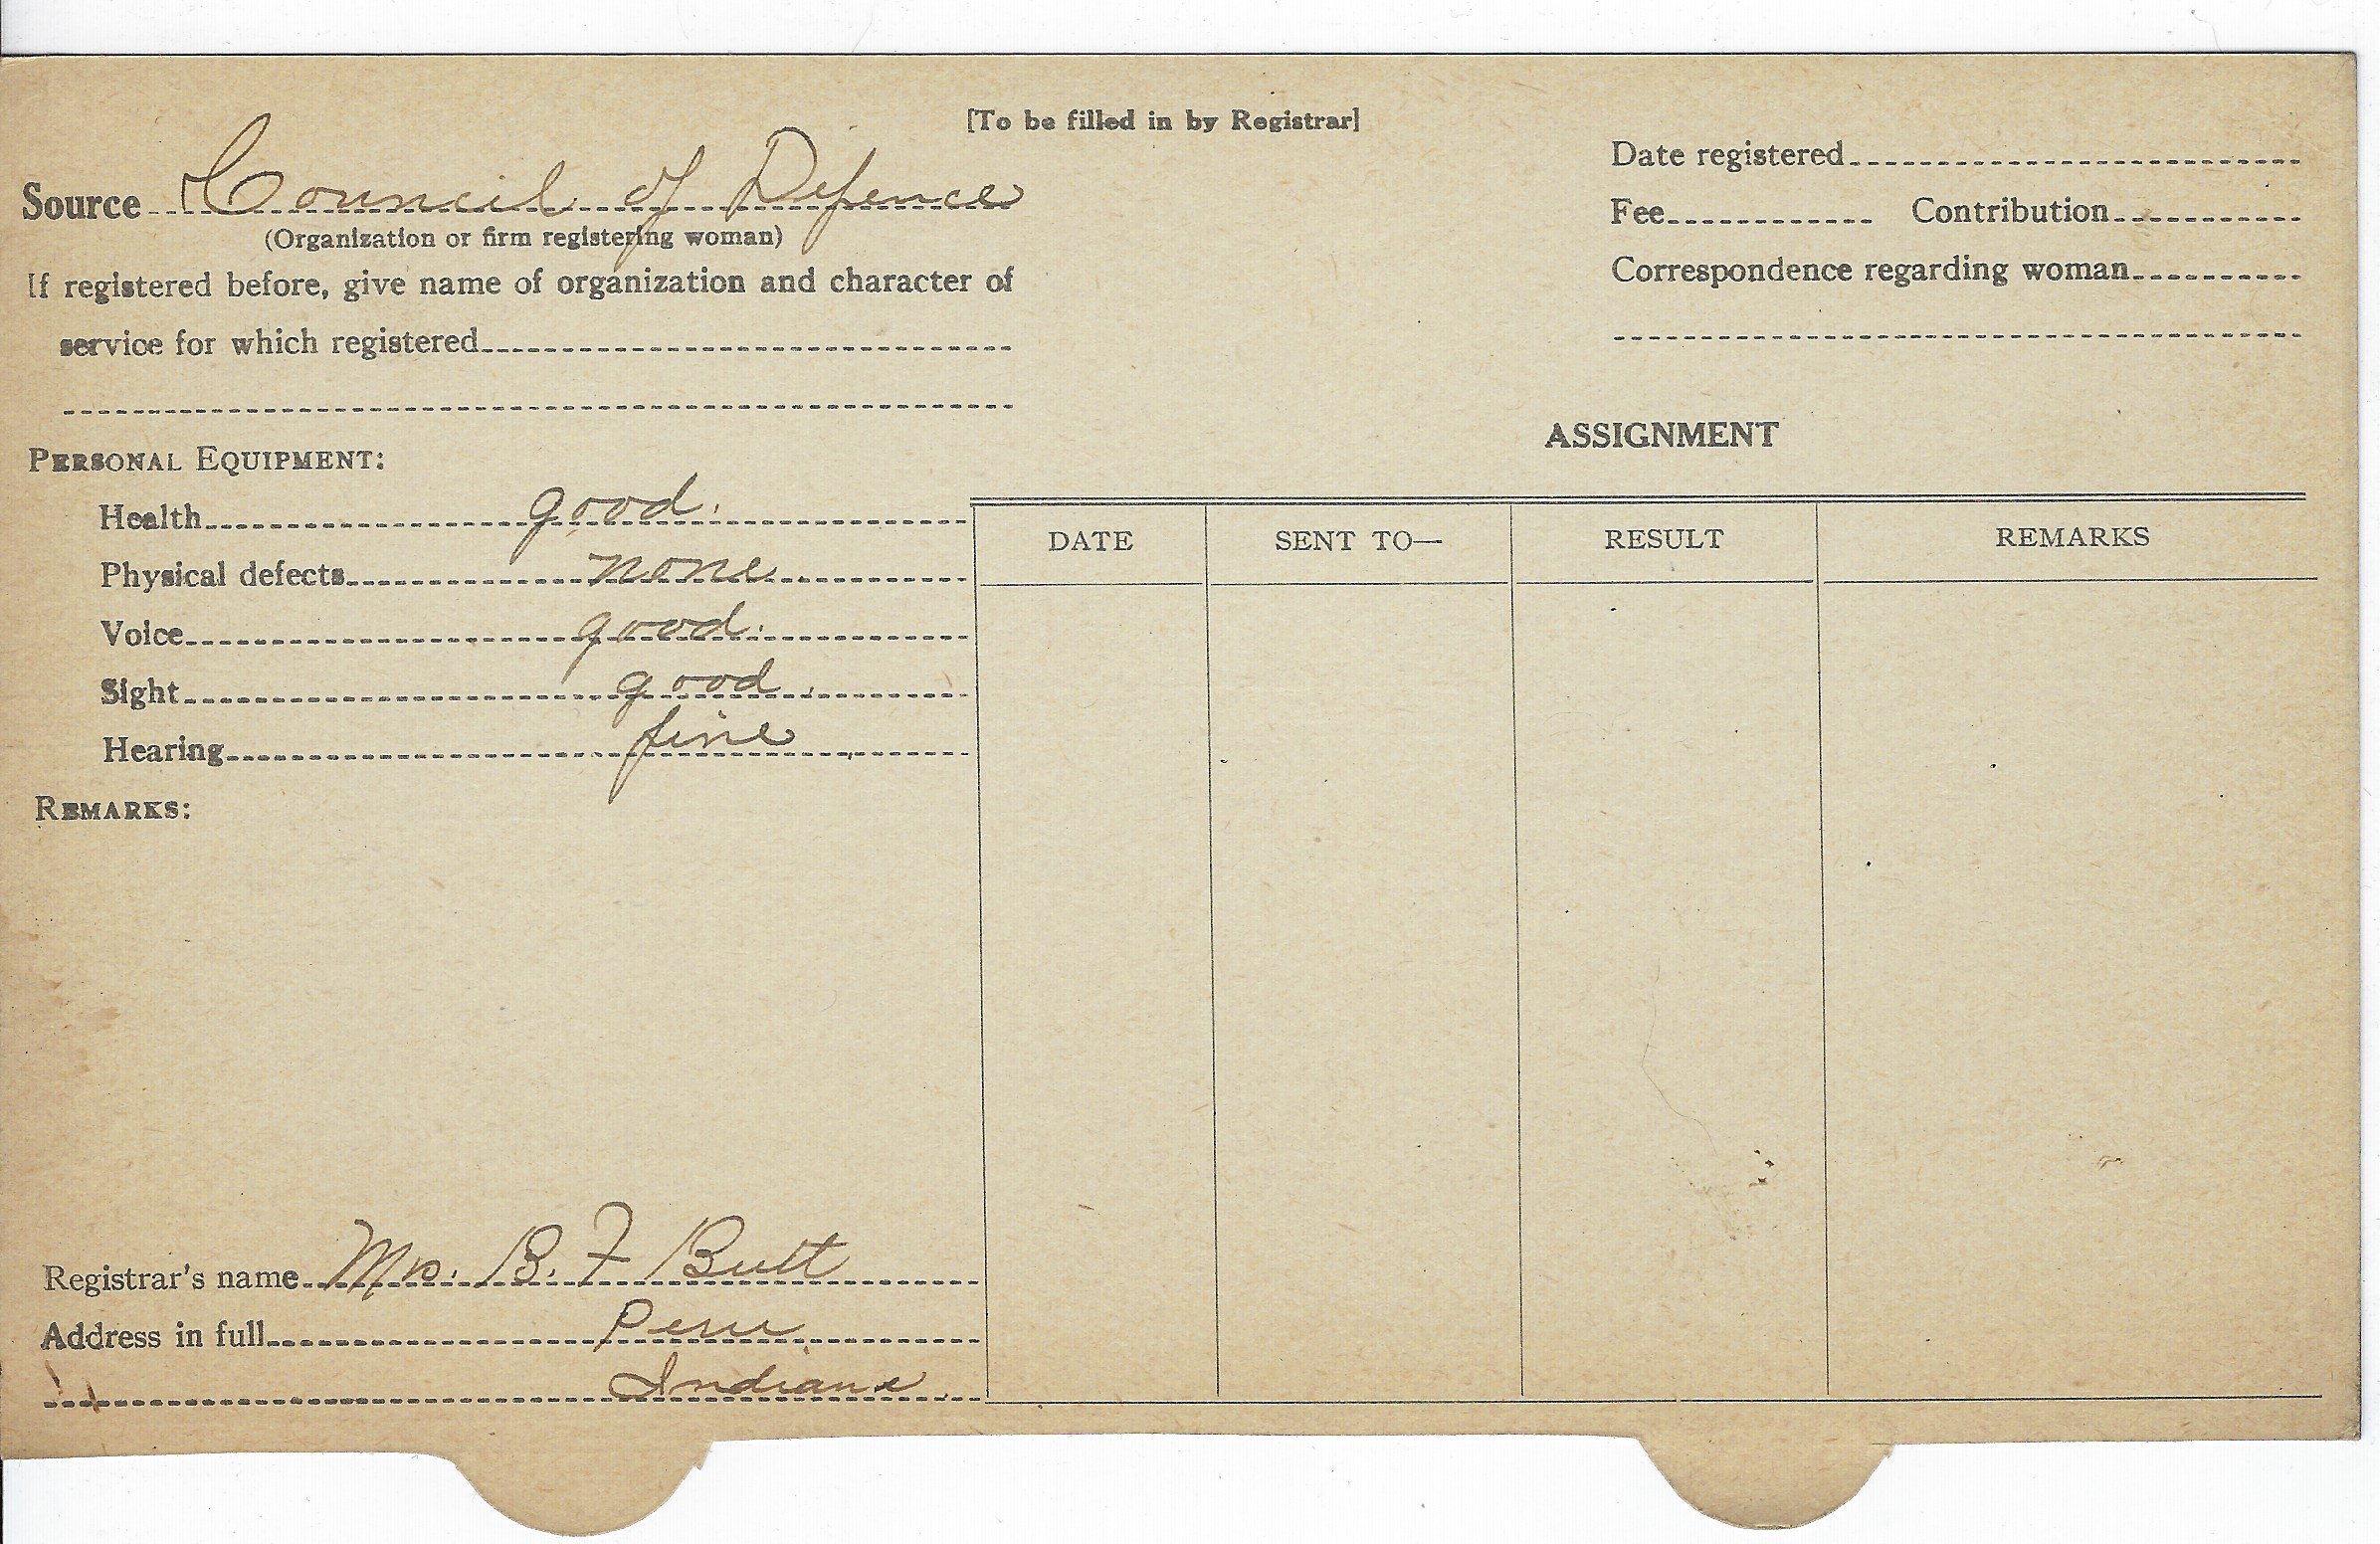 [To be filled in by Registrar]
Source Council of Defence
(Organization or firm registering woman)
If registered before, give name of organization and character of
service for which registered
Date registered
Fee Contribution
Correspondence regarding woman
PERSONAL EQUIPMENT:
Health good.
Physical defects none
Voice good.
Sight good
Hearing fine
REMARKS:
Registrar's name Mrs. B. F Butt
Address in full Peru
Indiana
ASSIGNMENT
DATE SENT TO— RESULT REMARKS